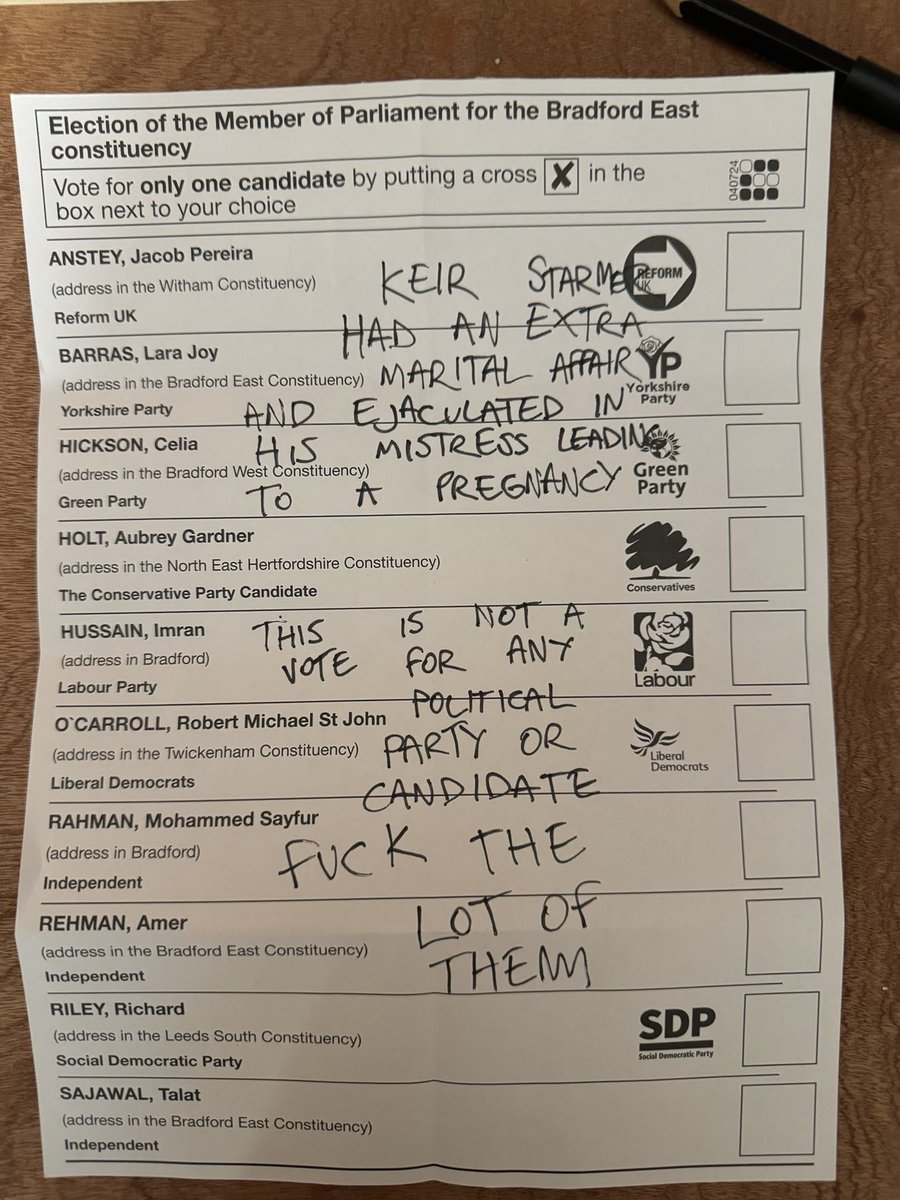 Election of the Member of Parliament for the Bradford East
constituency
Vote for only one candidate by putting a cross X in the
box next to your choice
040724
ANSTEY, Jacob Pereira
(address in the Witham Constituency)
Reform UK
KEIR STARMER
REFORM
UK
HAD AN EXTRA
BARRAS, Lara Joy
(address in the Bradford East Constituency)
Yorkshire Party
MARITAL AFFAIR
YP
Yorkshire
Party
AND EJACULATED IN
HICKSON, Celia
(address in the Bradford West Constituency)
Green Party
HIS MISTRESS LEADING
TO A PREGNANCY
Green
Party
HOLT, Aubrey Gardner
(address in the North East Hertfordshire Constituency)
The Conservative Party Candidate
Conservatives
HUSSAIN, Imran
(address in Bradford)
Labour Party
THIS IS NOT A
VOTE FOR ANY
Labour
POLITICAL
O`CARROLL, Robert Michael St John
(address in the Twickenham Constituency)
Liberal Democrats
PARTY OR
CANDIDATE
Liberal
Democrats
RAHMAN, Mohammed Sayfur
(address in Bradford)
Independent
FUCK THE
REHMAN, Amer
(address in the Bradford East Constituency)
Independent
LOT OF
THEM
RILEY, Richard
(address in the Leeds South Constituency)
Social Democratic Party
SDP
Social Democratic Party
SAJAWAL, Talat
(address in the Bradford East Constituency)
Independent